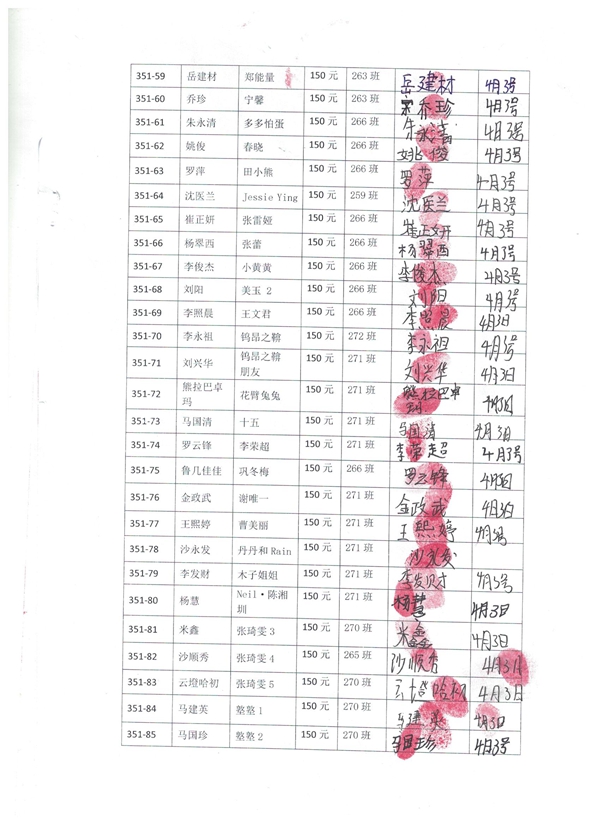 351-59 岳建材 郑能量 150元 263班 岳建材 4月3号
351-60 乔珍 宁馨 150元 263班 乔珍 4月3号
351-61 朱永清 多多怕蛋 150元 266班 朱永清 4月3号
351-62 姚俊 春晓 150元 266班 姚俊 4月3号
351-63 罗萍 田小熊 150元 266班 罗萍 4月3号
351-64 沈医兰 Jessie Ying 150元 259班 沈医兰 4月3号
351-65 崔正妍 张雷娅 150元 266班 崔正妍 4月3号
351-66 杨翠西 张蕾 150元 266班 杨翠西 4月3号
351-67 李俊杰 小黄黄 150元 266班 李俊杰 4月3号
351-68 刘阳 美玉 2 150元 266班 刘阳 4月3号
351-69 李照晨 王文君 150元 266班 李照晨 4月3日
351-70 李永祖 钨昂之鞥 150元 272班 李永祖 4月3号
351-71 刘兴华 钨昂之鞥 150元 271班 刘兴华 4月3日
朋友
351-72 熊拉巴卓 花臂兔兔 150元 271班 熊拉巴卓
玛 玛 4月3日
351-73 马国清 十五 150元 271班 马国清 4月3日
351-74 罗云锋 李荣超 150元 271班 李荣超 4月3号
351-75 鲁几佳佳 巩冬梅 150元 266班 罗云锋 4月3日
351-76 金政武 谢唯一 150元 271班 金政武 4月3日
351-77 王熙婷 曹美丽 150元 271班 王熙婷 4月3号
351-78 沙永发 丹丹和Rain 150元 271班 沙永发
351-79 李发财 木子姐姐 150元 271班 李发财 4月3号
351-80 杨慧 Neil·陈湘 150元 271班 杨慧 4月3日
圳
351-81 米鑫 张琦雯3 150元 270班 米鑫 4月3日
351-82 沙顺秀 张琦雯4 150元 265班 沙顺秀 4月3日
351-83 云瑠哈初 张琦雯5 150元 270班 4月3日
351-84 马建英 憗憗1 150元 270班 马建英 4月3日
351-85 马国珍 憗憗2 150元 270班 马国珍 4月3号